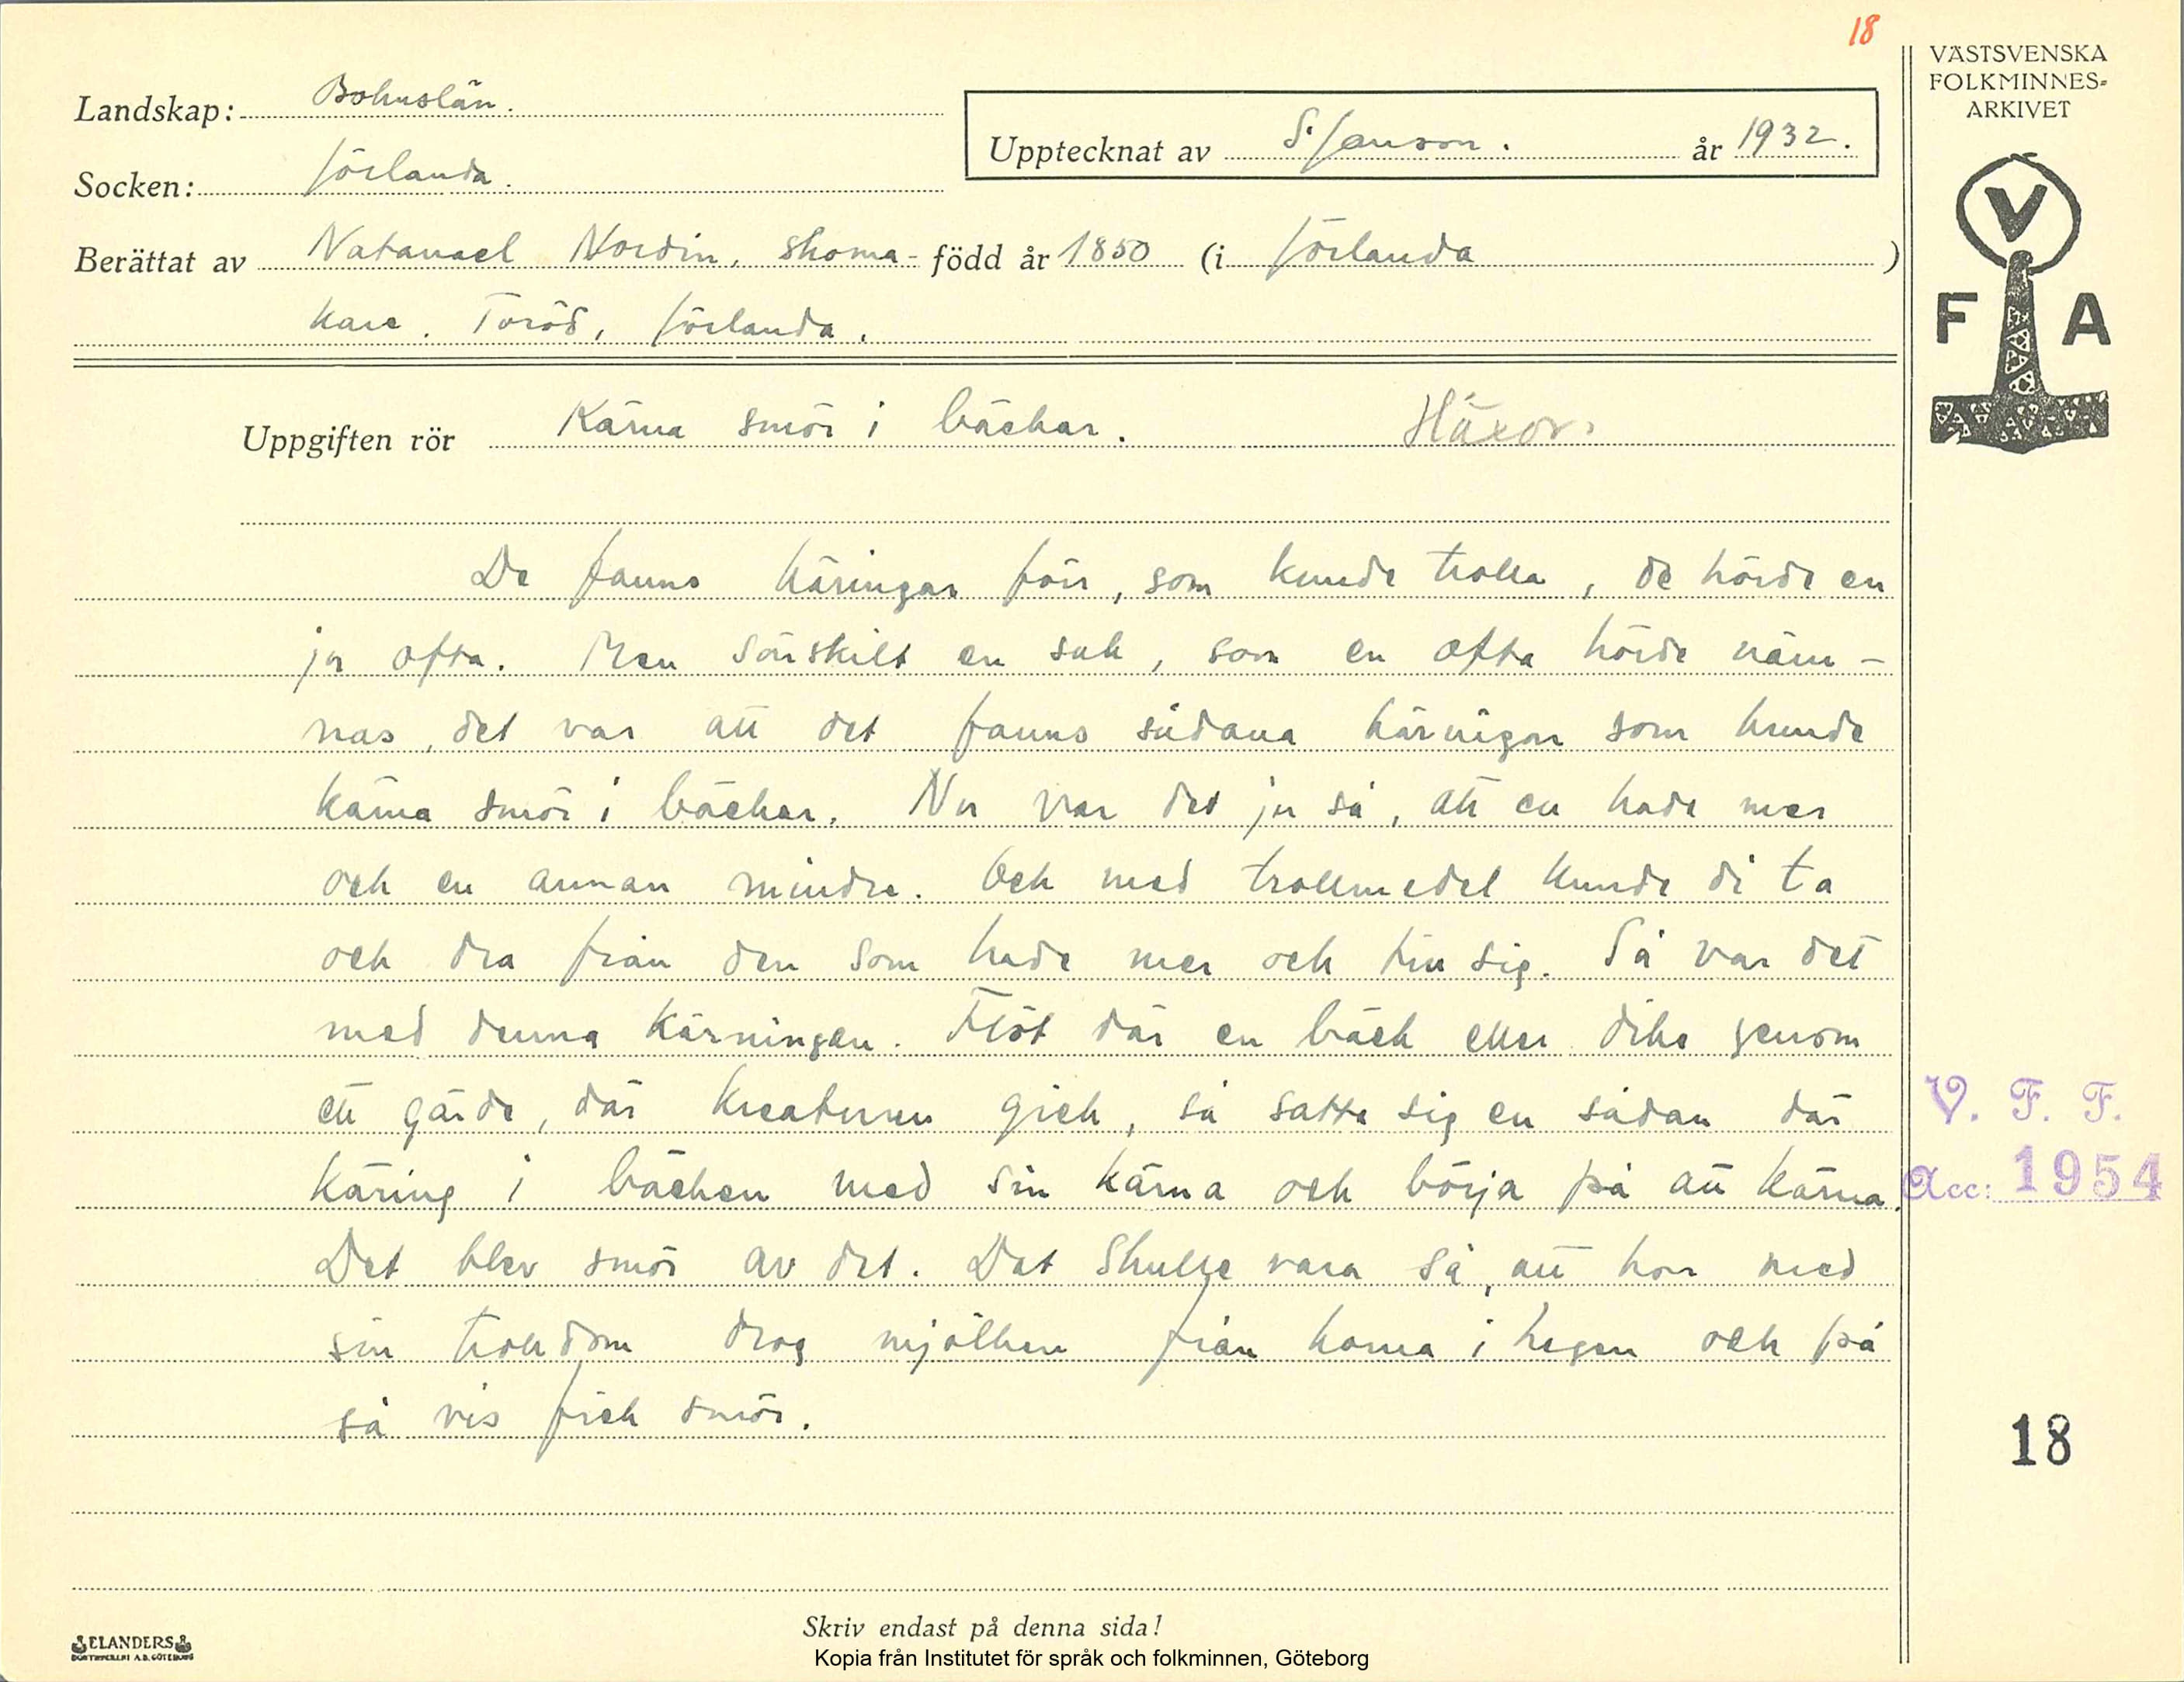 18
VÄSTSVENSKA
FOLKMINNES-
ARKIVET
Landskap: Bohuslän.
Upptecknat av S. Janson. år 1932.
Socken: Jörlanda.
Berättat av Natanael Nordin, skoma- född år 1850 (i Jörlanda )
kare. Toröd, Jörlanda.
V
F A
Uppgiften rör Kärna smör i bäckar. Häxor.
De fanns käringar förr, som kunde trolla, de hörde en
ju ofta. Men särskilt en sak, som en ofta hörde näm-
nas, det var att det fanns sådana käringar som kunde
kärna smör i bäckar. Nu var det ju så, att en hade mer
och en annan mindre. Och med trollmedel kunde di ta
och dra från den som hade mer och till sig. Så var det
med denna kärningen. Flöt där en bäck eller dike genom
ett gärde, där kreaturen gick, så satte sig en sådan där
käring i bäcken med sin kärna och börja på att kärna.
Det blev smör av det. Det skulle vara så, att hon med
sin trolldom drog mjölken från korna i hagen och på
så vis fick smör.
V. F. F.
Acc: 1954
18
Skriv endast på denna sida!
ELANDERS
BOKTRYCKERI A.B. GÖTEBORG
Kopia från Institutet för språk och folkminnen, Göteborg